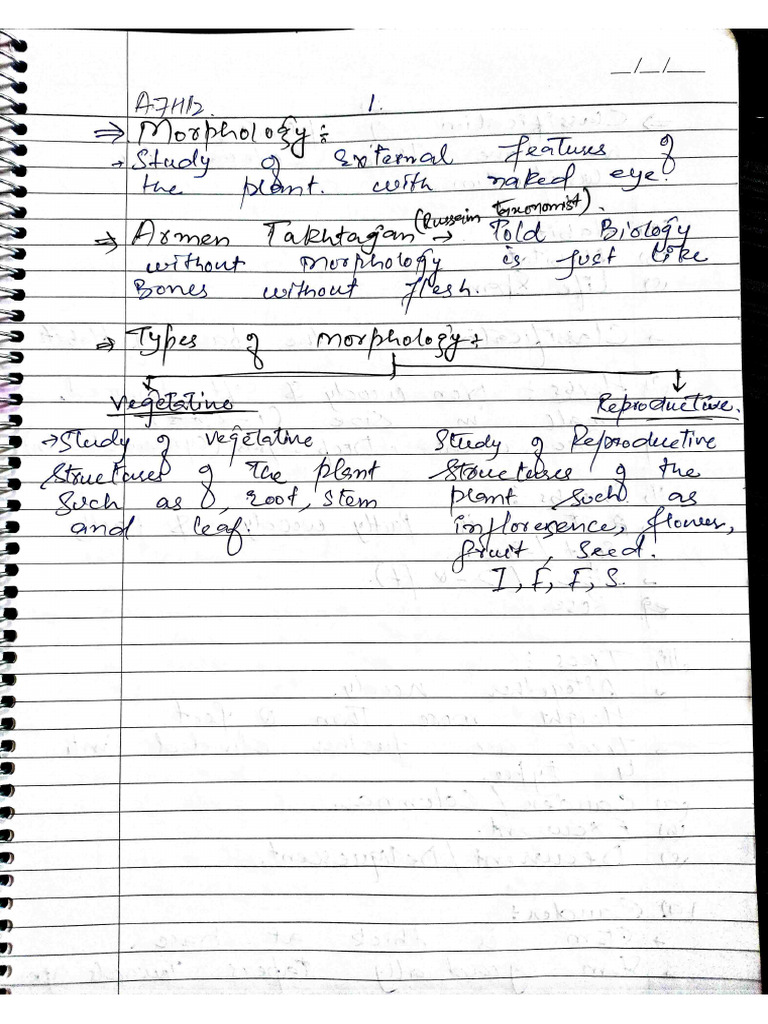 _/_/_
1.
⇒ Morphology:
→ Study of external features of
the plant. with naked eye.
(Russain taxonomist).
⇒ Armen Takhtagan → Told Biology
without morphology is just like
Bones without flesh.
⇒ Types of morphology:
Vegetative
→ Study of vegetative
structures of the plant
such as, root, stem
and leaf.
Reproductive.
Study of Reproductive
structures of the
plant such as
infloresence, flower,
fruit, seed.
I, F, F, S.